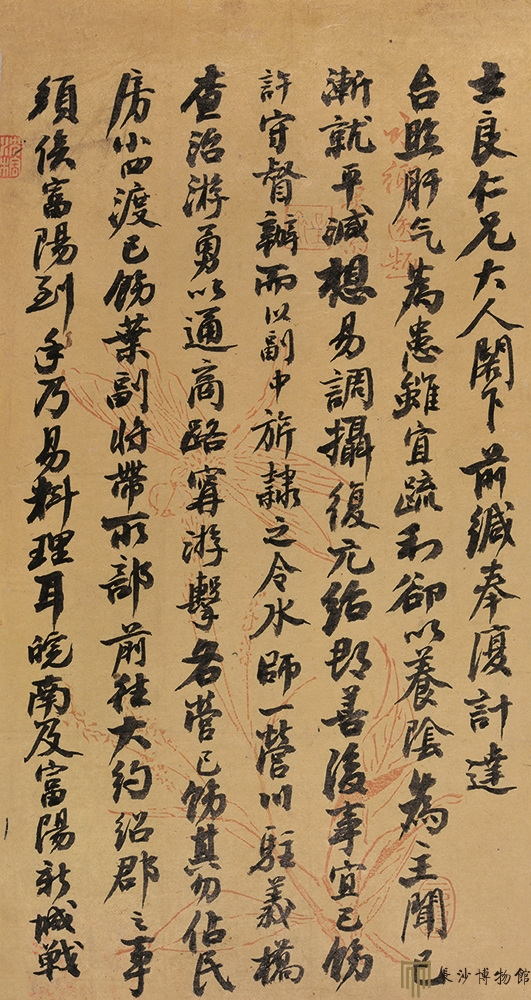 士良仁兄大人閣下前緘奉復計達
台照肝气為患雖宜疏利卻以養陰為主聞已
漸就平減想易調攝復元紹郡善後事宜已飭
許守督辦而以副中旂隸之令水師一營川駐義橋
查治游勇以通商路寗游擊各營已飭其勿佔民
房小四渡已飭葉副將帶所部前往大約紹郡之事
須俟富陽到手乃易料理耳皖南及富陽新城戰
長沙博物館